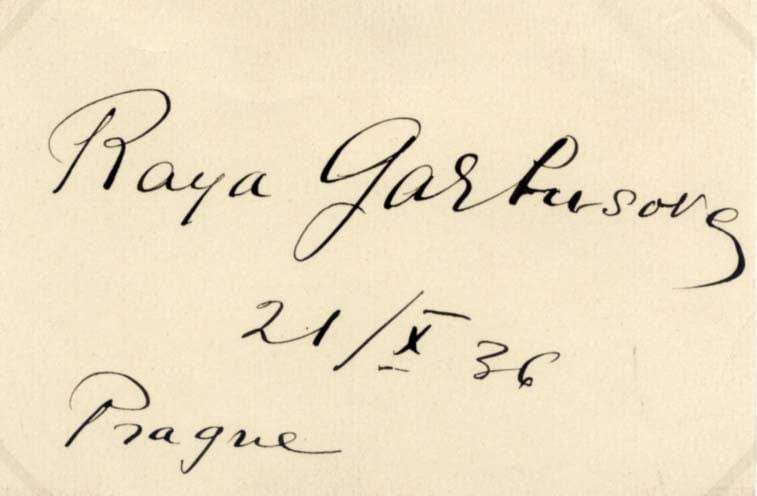 Raya Garbusova
21/X 36
Prague